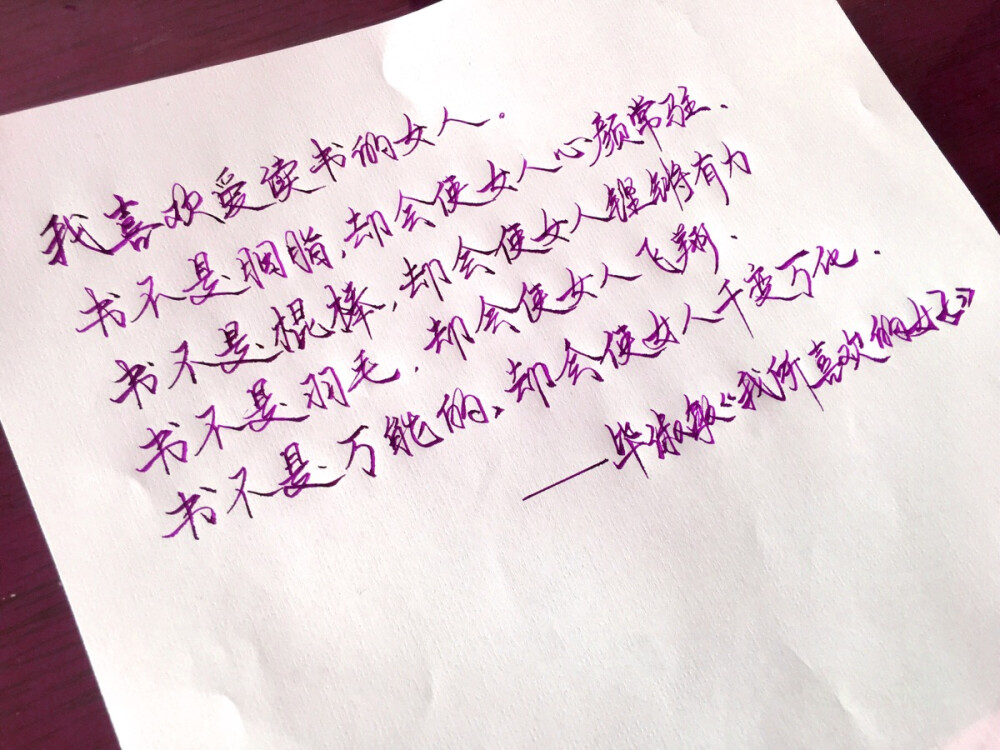 我喜欢爱读书的女人.
书不是胭脂,却会使女人心颜常驻.
书不是棍棒,却会使女人铿锵有力
书不是羽毛,却会使女人飞翔.
书不是万能的,却会使女人千变万化.
——毕淑敏《我所喜欢的女子》